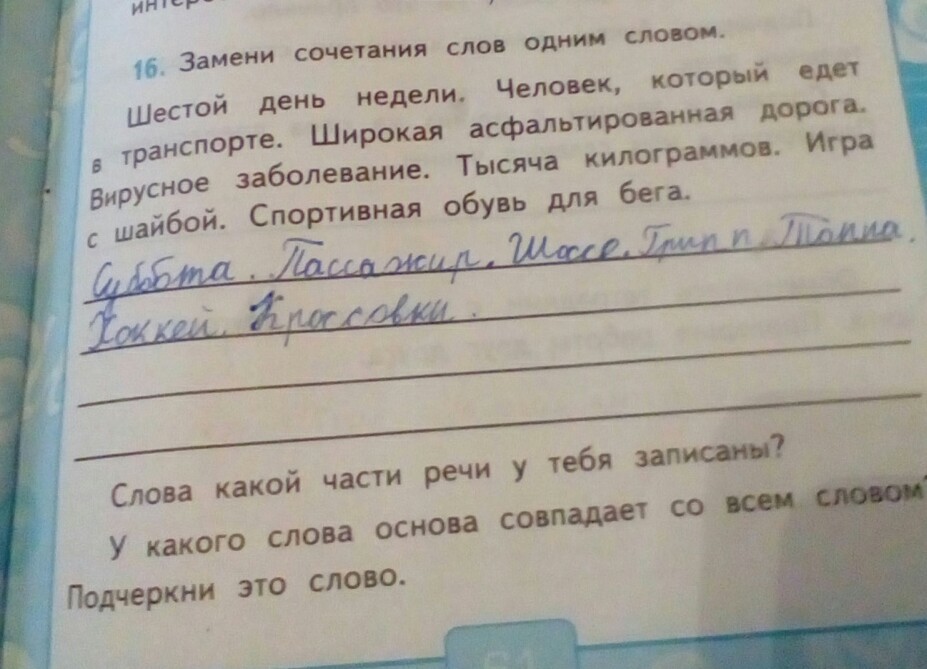 16. Замени сочетания слов одним словом.
Шестой день недели. Человек, который едет
в транспорте. Широкая асфальтированная дорога.
Вирусное заболевание. Тысяча килограммов. Игра
с шайбой. Спортивная обувь для бега.
Суббота. Пассажир. Шоссе. Грипп. Тонна.
Хоккей. Кроссовки.
Слова какой части речи у тебя записаны?
У какого слова основа совпадает со всем словом
Подчеркни это слово.